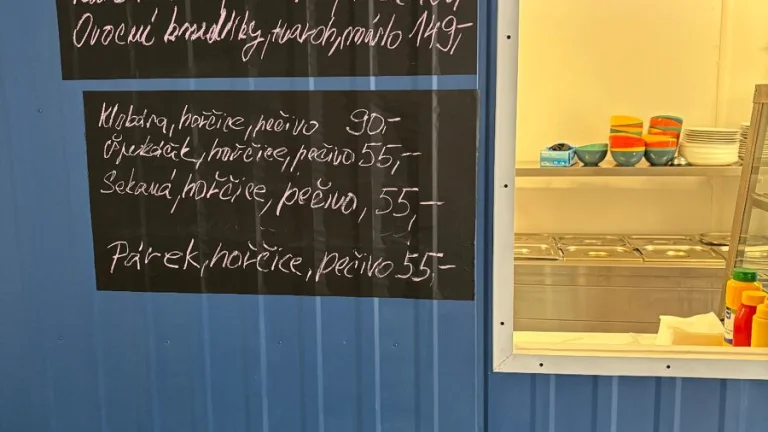 Ovocné knedlíky, tvaroh, máslo 149,-
Klobása, hořčice, pečivo 90,-
Špekáček, hořčice, pečivo 55,-
Sekaná, hořčice, pečivo, 55,-
Párek, hořčice, pečivo 55,-